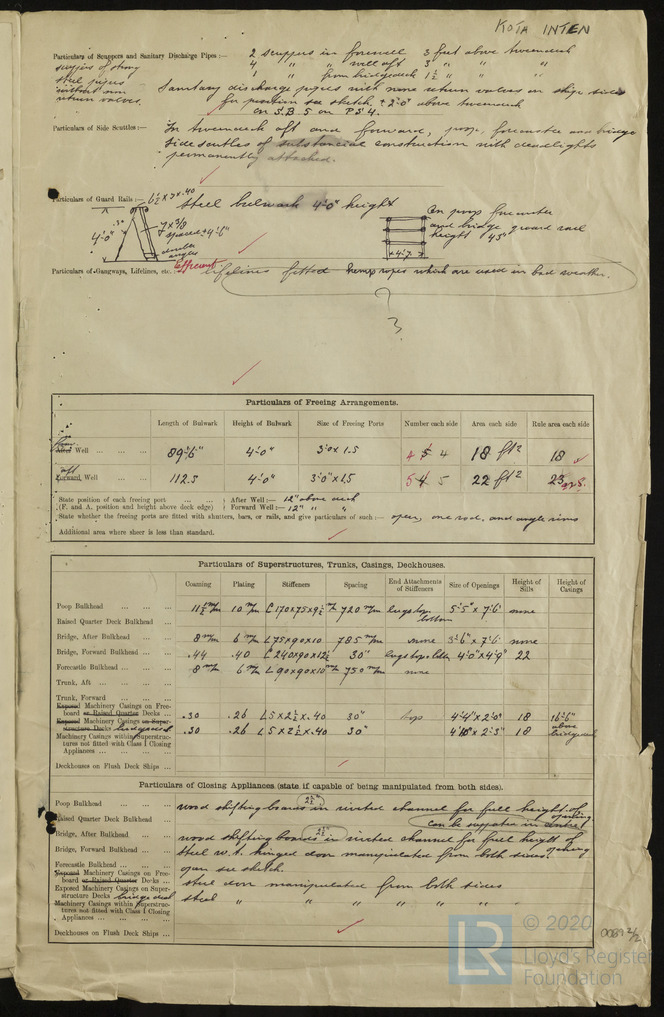 KOTA INTEN
Particulars of Scuppers and Sanitary Discharge Pipes :— 2 scuppers in forewell 3 feet above tweendeck
scuppers of strong 4 " " well aft 3 " " "
steel pipes 1 " from bridgedeck 1½ " " "
without non return valves. Sanitary discharge pipes with none return valves on ship sides
for position see sketch, ± 2'-0" above tweendeck
on S.B 5 on P.S 4.
Particulars of Side Scuttles :— In tweendeck aft and forward, poop, forecastle and bridge
side scuttles of substancial construction with deadlights
permanently attached.
Particulars of Guard Rails :— 6½ x 7 x .40 Steel bulwark 4'-0" height
4'-0" .3" 7 x 3/8 spaced ± 4'-6" double angles
On poop forecastle and bridge guard rail height 43"
± 4'-7
Particulars of Gangways, Lifelines, etc. Efficient lifelines fitted hemp ropes which are used in bad weather.
?
?
Particulars of Freeing Arrangements.
Length of Bulwark Height of Bulwark Size of Freeing Ports Number each side Area each side Rule area each side
After Well ... ... ... 89'-6" 4'-0" 3'-0 x 1.5 4 5 4 18 ft² 18
aft
Forward Well ... ... 112.5 4'-0" 3'-0" x 1.5 5 4 5 22 ft² 23
State position of each freeing port ... ... After Well :— 12" above deck
(F. and A. position and height above deck edge) Forward Well :— 12" " "
State whether the freeing ports are fitted with shutters, bars, or rails, and give particulars of such :— open, one rod, and angle rims
Additional area where sheer is less than standard.
Particulars of Superstructures, Trunks, Casings, Deckhouses.
Coaming Plating Stiffeners Spacing End Attachments of Stiffeners Size of Openings Height of Sills Height of Casings
Poop Bulkhead ... ... ... 11½ m/m 10 m/m [ 170 x 75 x 9½ m/m 720 m/m lugs top bottom 5'-5" x 7'-6" none
Raised Quarter Deck Bulkhead
Bridge, After Bulkhead ... ... 8 m/m 6 m/m L 75 x 90 x 10 785 m/m none 3'-6" x 7'-6 none
Bridge, Forward Bulkhead ... .44 .40 [ 240 x 90 x 12½ 30" lugs top & bottom 4'-0" x 4'-9" 22
Forecastle Bulkhead ... ... 8 m/m 6 m/m L 90 x 90 x 10 m/m 750 m/m none
Trunk, Aft ... ... ... ...
Trunk, Forward ... ... ...
Exposed Machinery Casings on Free-
board or Raised Quarter Decks ... .30 .26 L 5 x 2½ x .40 30" top 4'-4" x 2'-0" 18 16'-6"
Exposed Machinery Casings on Super-
structure Decks bridgedeck .30 .26 L 5 x 2½ x .40 30" 4'10" x 2'-3" 18 above bridgedeck
Machinery Casings within Superstruc-
tures not fitted with Class I Closing
Appliances ... ... ... ...
Deckhouses on Flush Deck Ships ...
Particulars of Closing Appliances (state if capable of being manipulated from both sides).
Poop Bulkhead ... ... ... wood shifting boards 2½" in riveted channel for full height of opening
Raised Quarter Deck Bulkhead ... can be supported in centre
Bridge, After Bulkhead ... ... wood shifting boards 2½" in riveted channel for full height of opening
Bridge, Forward Bulkhead ... steel w.t. hinged door manipulated from both sides.
Forecastle Bulkhead ... ... open see sketch.
Exposed Machinery Casings on Free-
board or Raised Quarter Decks ... steel door manipulated from both sides
Exposed Machinery Casings on Super-
structure Decks bridge deck steel " " " " "
Machinery Casings within Superstruc-
tures not fitted with Class I Closing
Appliances ... ... ... ...
Deckhouses on Flush Deck Ships ...
0089 2/2
LR © 2020
Lloyd's Register
Foundation